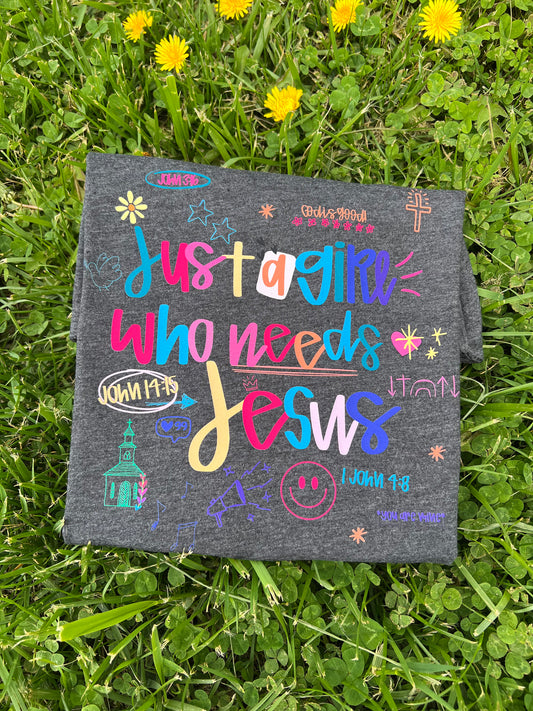 John 3:16
God is good!
Just a girl
who needs
Jesus
John 14:15
1 John 4:8